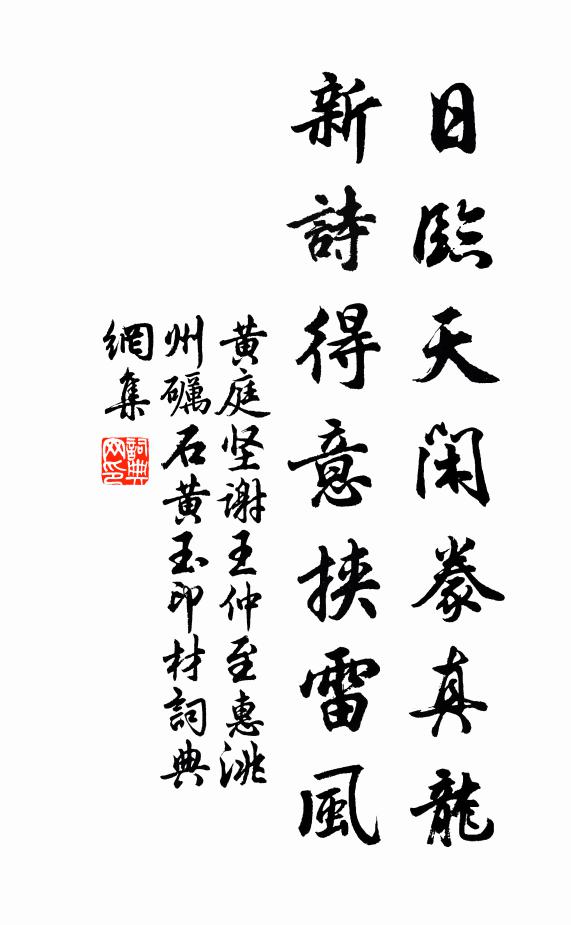 日臨天閑豢真龍
新詩得意挾雷風
黄庭坚谢王仲至惠洮
州礪石黄玉印材詞典
網集
詞典網印